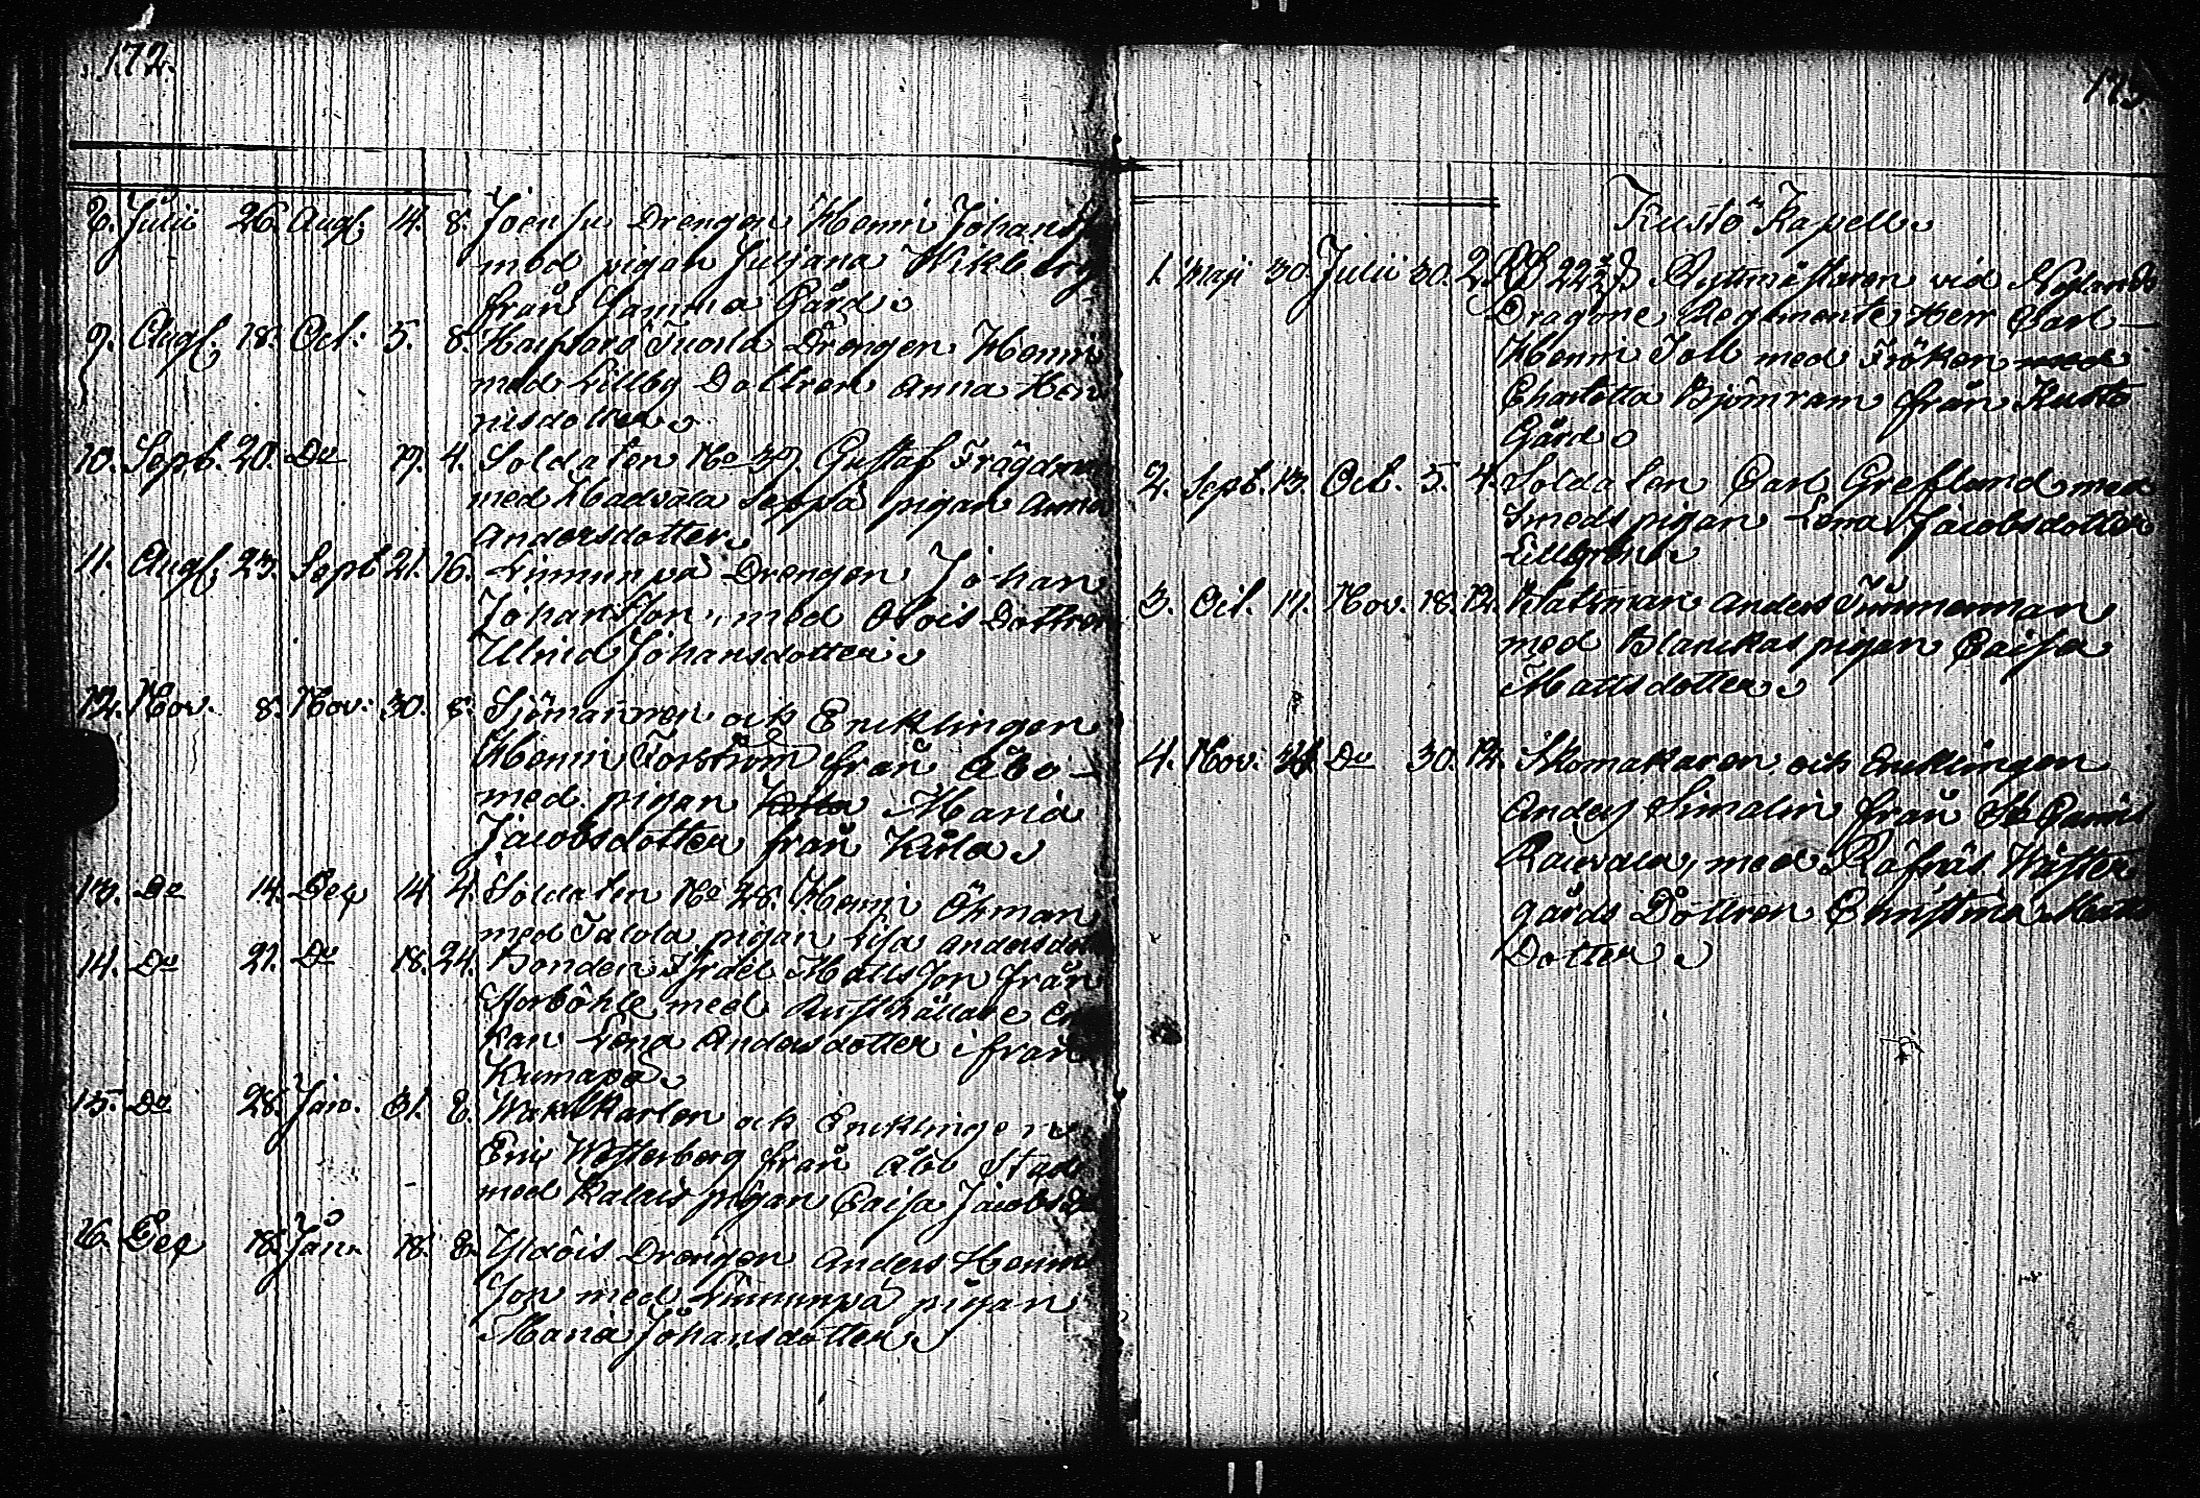 172.
8. Julii 26. Aug. 14. 8. Joensu Drengen Henric Johans
med pigan Juliana Wikberg
från Gamma Gård
9. Aug. 18. Oct: 5. 8. Tuorla Drengen Henric
med Lillby Dottren Anna Hen
risdotter
10. Sept. 20. Do 19. 4. Soldaten No 39. Gustaf Trägd
med Hadvala Seppä pigan Anna
Andersdotter
11. Aug. 23. Sept 21. 16. Limunpä Drengen Johan
Johansson, med Olois Dottren
Ulrica Johansdotter
12. Nov. 8. Nov: 30. 8. Sjömannen och Encklingen
Henric Forström från Åbo
med pigan Maria
Jacobsdotter från Kirla
13. Do 14. Dec 14 4. Soldaten No 28. Henric Öhman
med Talola pigan Lisa Andersdot
14. Do 21. Do 18. 24. Bonden Israel Mattsson från
Storböhle med Rusthållare En
kan Lena Andersdotter ifrån
Kumapä
15. Do 28. Jan. 31. 8. Waktkarlen och Encklingen
Eric Westerberg från Åbo Stad
med Kalais pigan Caisa Jacobsd
16. Dec 18. Jan. 18. 8. Yldöis Drengen Anders Henrics
son med Limunpä pigan
Maria Johansdotter
173.
Kustö Kapell
1. Maji 30. Julii 30. 2 Rd 22 Ryttmästaren vid Nylands
Dragone Regemente Herr Carl
Henric Toll med Fröken med
Charlotta Björnram från Kustö
Gård
2. Sept. 13. Oct. 5. 4. Soldaten Carl Grefland med
Smeds pigan Lena Jacobsdotter
Lillgren
3. Oct. 11. Nov. 18. 12. Båtsman Anders Timmerman
med Blanckas pigan Caisa
Mattsdotter
4. Nov. Do 30. 12. Skomakaren och Encklingen
Anders Simalin från St Carins
Raunala, med Råfnäs Wäster
gårds Dottren Christina Matts
Dotter